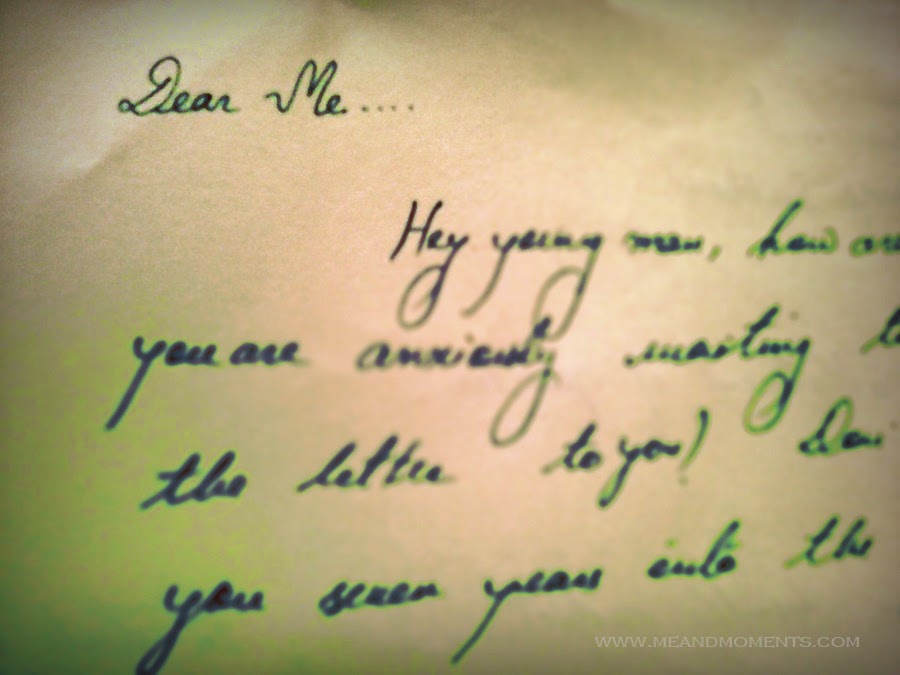 Dear Me....
Hey young man, how are
you are anxiously waiting
the letter to you!
you seven years into the
WWW.MEANDMOMENTS.COM